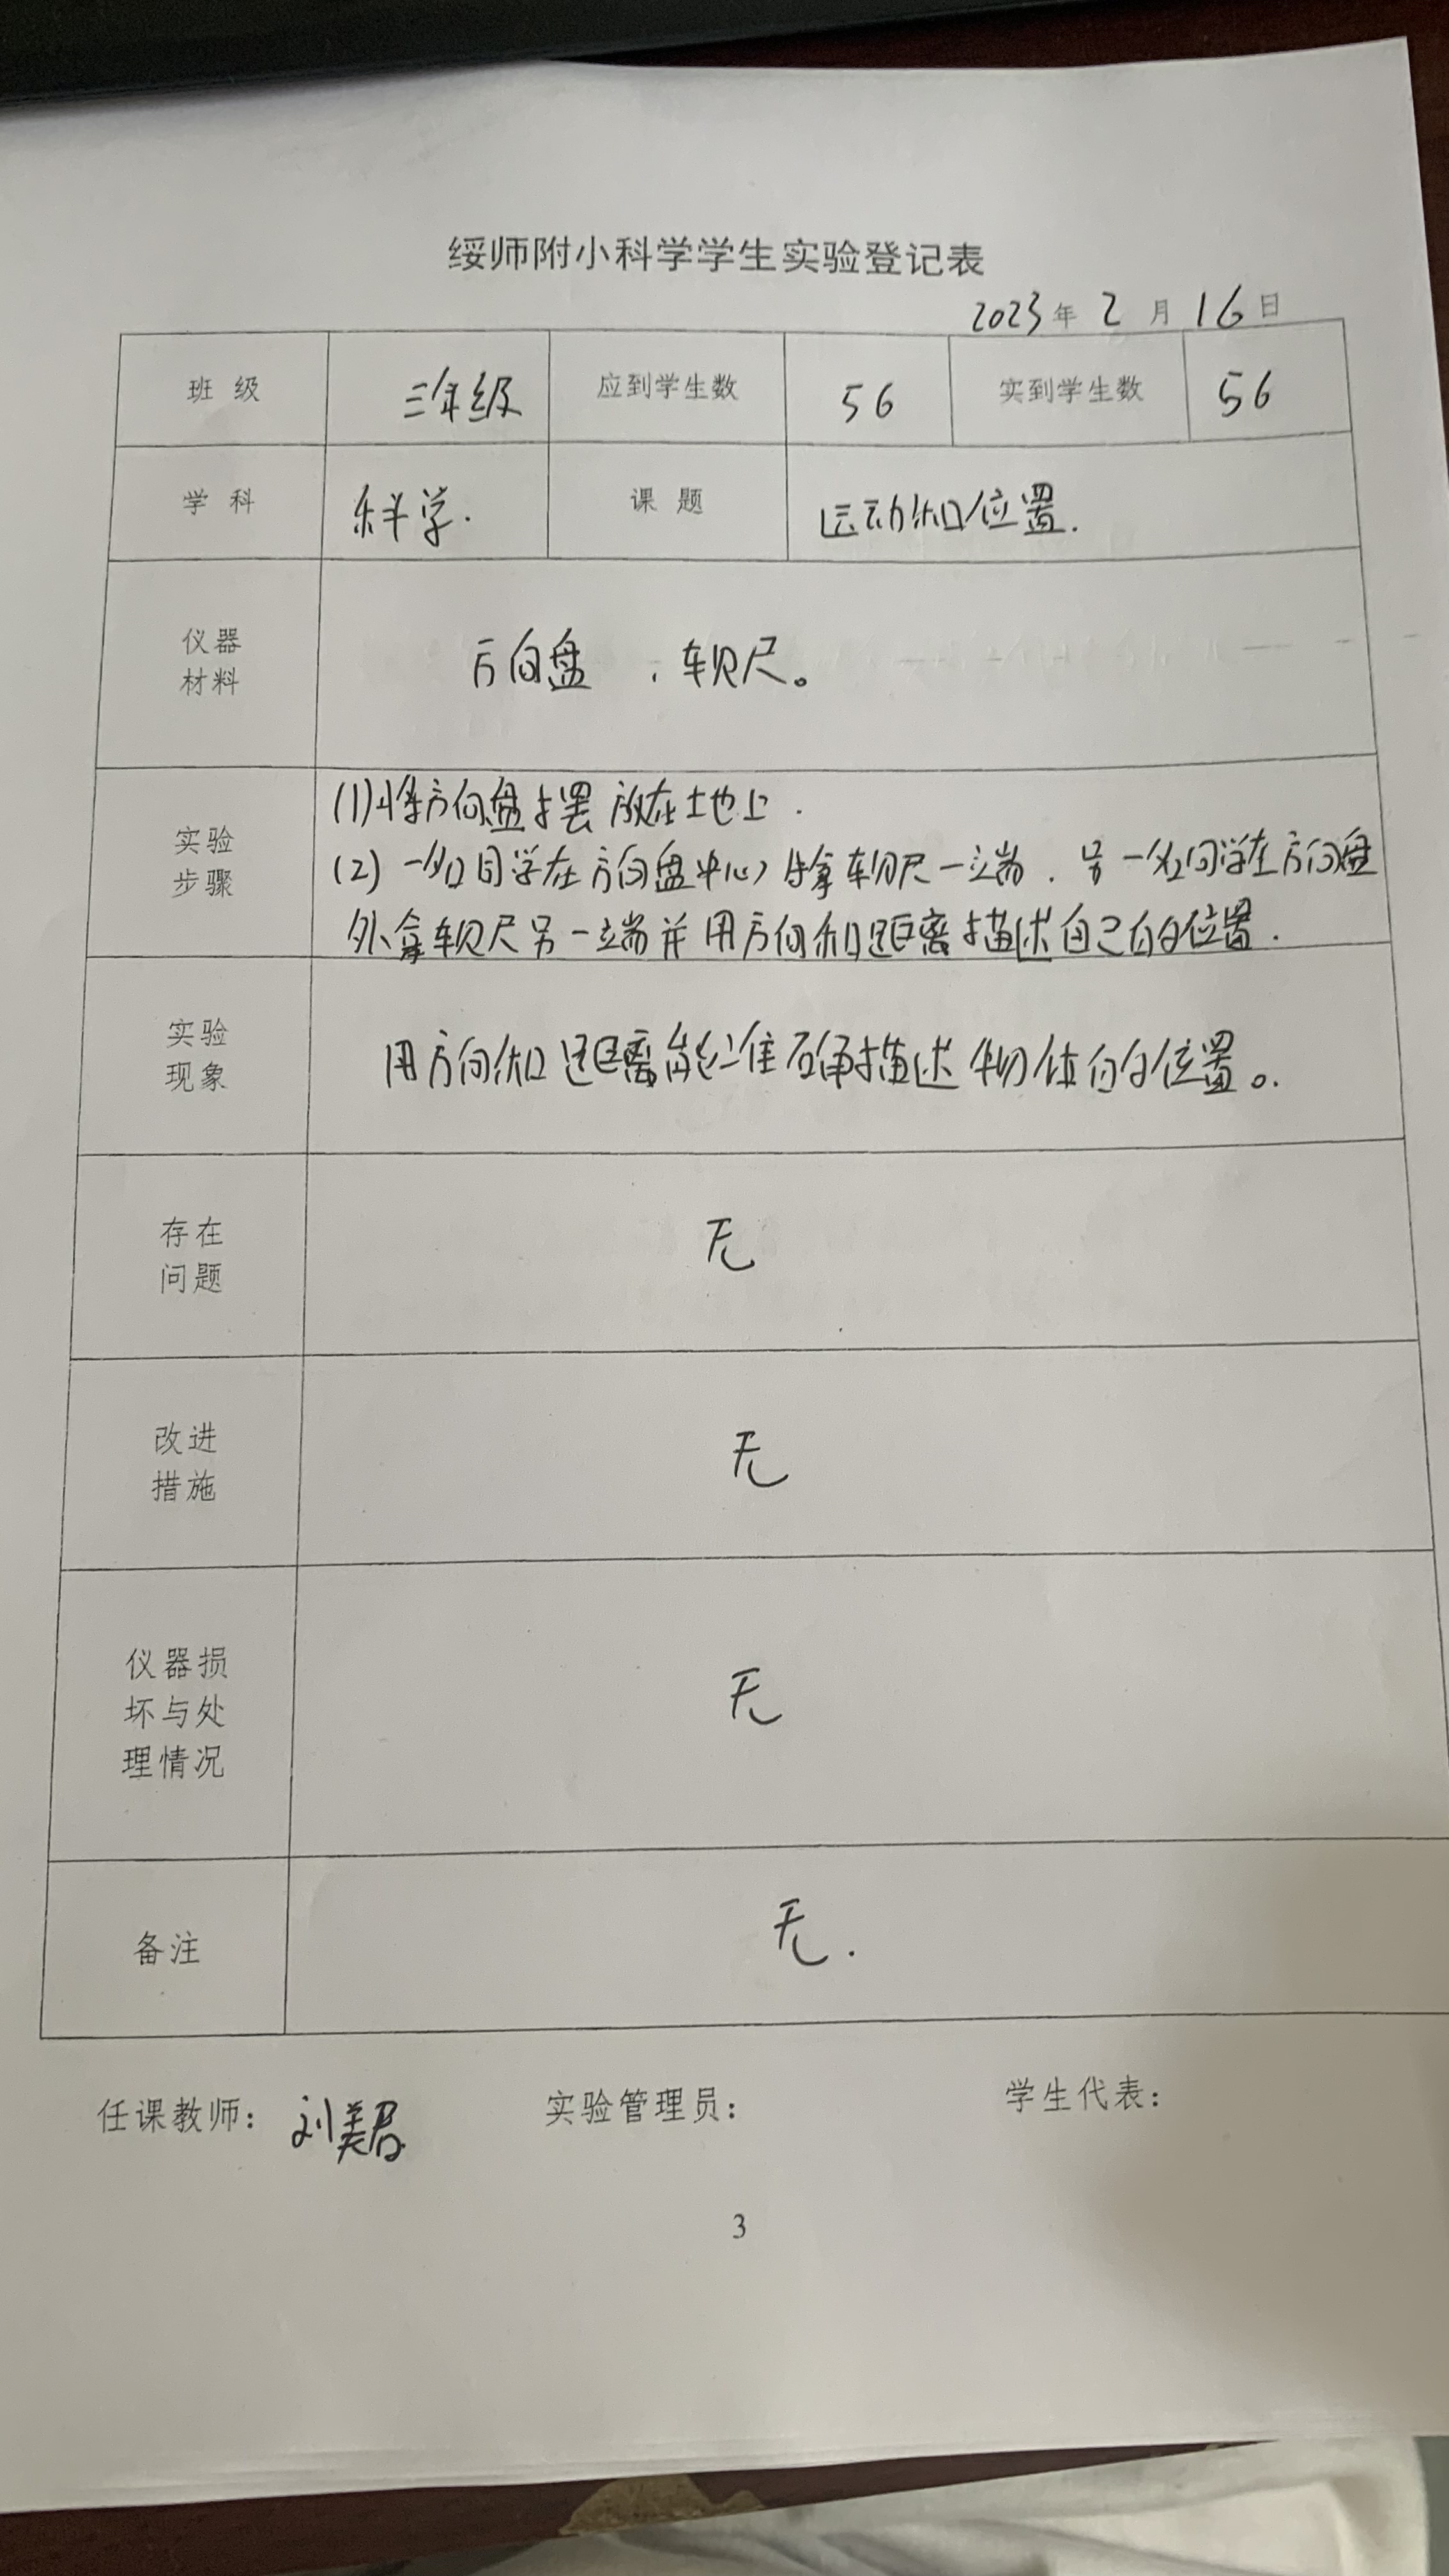 绥师附小科学学生实验登记表
2023年 2 月 16日
班 级 三年级 应到学生数 56 实到学生数 56
学 科 科学. 课 题 运动和位置.
仪器
材料
方向盘 、软尺。
实验
步骤
(1)将方向盘摆放在地上.
(2) 一名同学在方向盘中心拿软尺一端、另一名同学在方向盘
外拿软尺另一端并用方向和距离描述自己的位置.
实验
现象
用方向和距离能准确描述物体的位置。
存在
问题
无
改进
措施
无
仪器损
坏与处
理情况
无
备注
无.
任课教师: 刘美君 实验管理员: 学生代表:
3